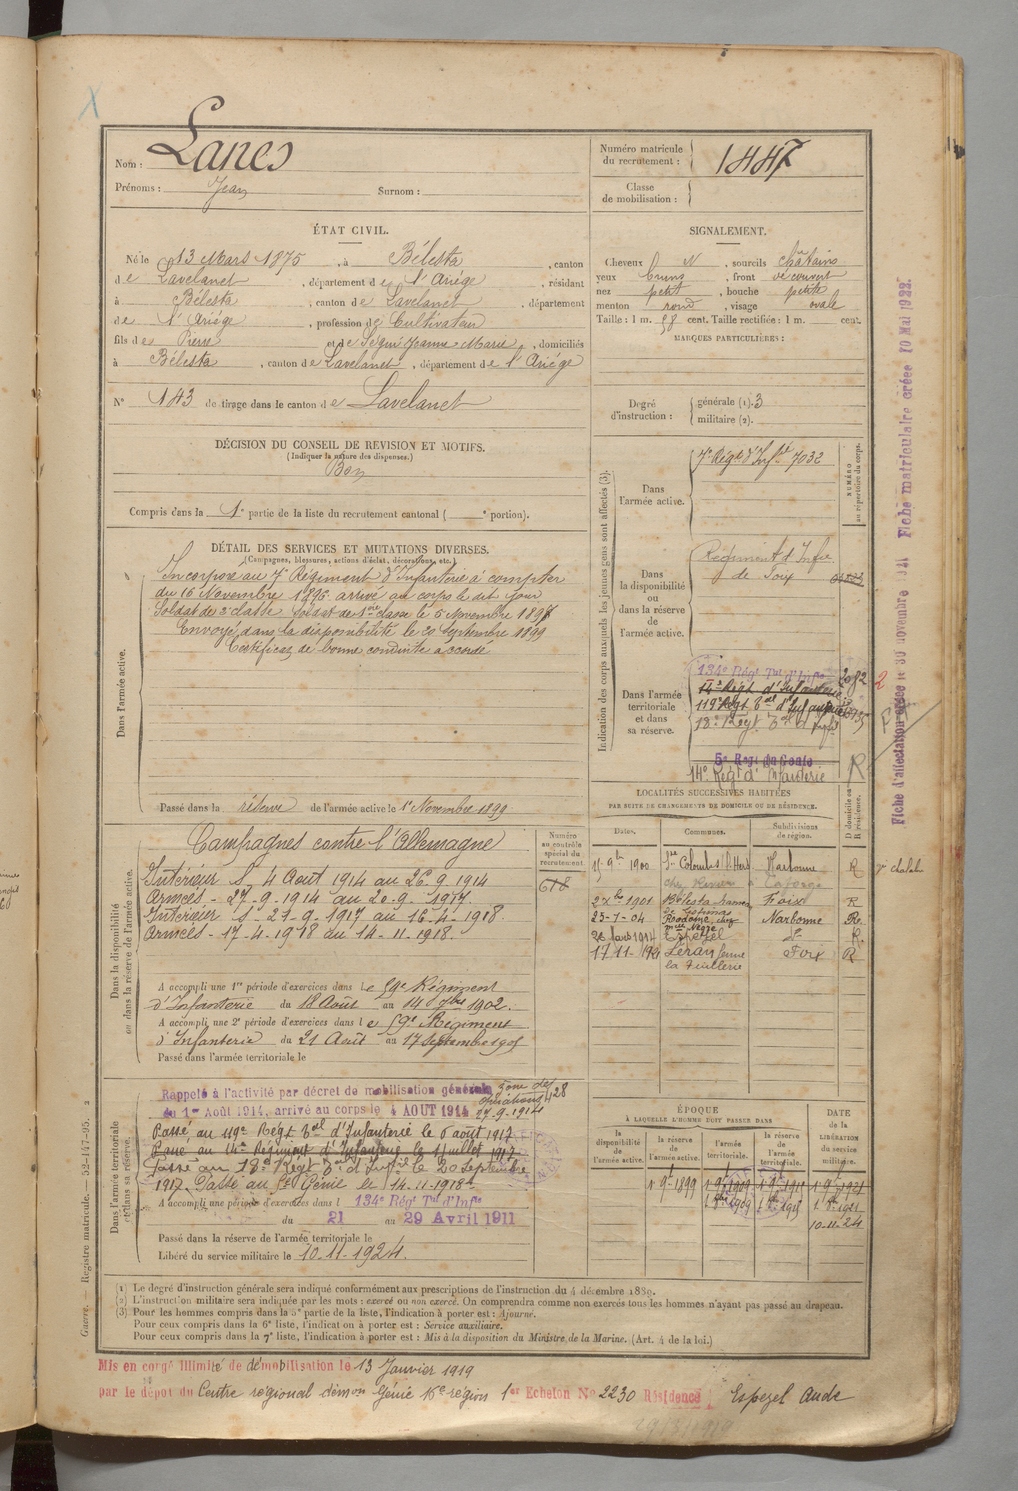 Nom : Lanes
Prénoms : Jean Surnom :
Numéro matricule du recrutement : 1447
Classe de mobilisation :
ÉTAT CIVIL.
Né le 13 Mars 1875, à Bélesta, canton
de Lavelanet, département de l'Ariége, résidant
à Bélesta, canton de Lavelanet, département
de l'Ariége, profession de Cultivateur
fils de Pierre et de Jeanne Marie, domiciliés
à Bélesta, canton de Lavelanet, département de l'Ariége
N° 143 de tirage dans le canton de Lavelanet
DÉCISION DU CONSEIL DE REVISION ET MOTIFS.
(Indiquer la nature des dispenses.)
Bon
Compris dans la 1e partie de la liste du recrutement cantonal ( e portion).
SIGNALEMENT.
Cheveux N, sourcils châtains
yeux bruns, front découvert
nez petit, bouche petite
menton rond, visage ovale
Taille : 1 m. 58 cent. Taille rectifiée : 1 m. cent.
MARQUES PARTICULIÈRES :
Degré d'instruction : générale (1). 3
militaire (2).
DÉTAIL DES SERVICES ET MUTATIONS DIVERSES.
(Campagnes, blessures, actions d'éclat, décorations, etc.)
Dans l'armée active.
Incorporé au 7e Régiment d'Infanterie à compter
du 16 Novembre 1896 arrivé au corps le dit jour
Soldat de 2e classe Soldat de 1ère classe le 5 Novembre 1897
Envoyé dans la disponibilité le 20 Septembre 1899
Certificat de bonne conduite accordé
Passé dans la réserve de l'armée active le 1er Novembre 1899
Indication des corps auxquels les jeunes gens sont affectés (3).
NUMÉRO au répertoire du corps.
Dans l'armée active.
7e Régt d'Infie 7032
Dans la disponibilité ou dans la réserve de l'armée active.
Régiment d'Infie
de Foix
Dans l'armée territoriale et dans sa réserve.
134e Régt Tal d'Infie 2082
14e Régt d'Infanterie
119e Régt Tal d'Infanterie
18e Régt Tal d'Infie
5e Regt du Genie
14e Regt d'Infanterie R
Fiche d'affectation créée le 30 novembre 1921 Fiche matriculaire créée 10 Mai 1922.
Dans la disponibilité ou dans la réserve de l'armée active.
Numéro au contrôle spécial du recrutement.
618
Campagnes contre l'Allemagne
Intérieur S. 4 Aout 1914 au 26.9.1914
Armées - 27-9-1914 au 20.9.1917.
Intérieur S. 21-9-1917 au 16-4-1918.
Armées - 17-4-1918 au 14-11-1918.
A accompli une 1re période d'exercices dans le 59e Régiment
d'Infanterie du 18 Août au 14 7bre 1902.
A accompli une 2e période d'exercices dans le 59e Régiment
d'Infanterie du 21 Août au 17 Septembre 1905
Passé dans l'armée territoriale le
LOCALITÉS SUCCESSIVES HABITÉES
PAR SUITE DE CHANGEMENTS DE DOMICILE OU DE RÉSIDENCE.
Dates. Communes. Subdivisions de région. D domicile ou R résidence.
1900 Ste Colombe s/ l'Hers Narbonne R
1901 Bélesta Foix R
25-1-04 Rodome Narbonne R
1914 Espezel d° R.
17-11-1921 Léran ferme Foix R
la Tuillerie
Dans l'armée territoriale et dans sa réserve.
Rappelé à l'activité par décret de mobilisation générale
du 1er Août 1914, arrivé au corps le 4 AOUT 1914
Zone des opérations 27-9-1914
428
Passé au 119e Régt Tal d'Infanterie le 6 août 1917
Passé au 14e Régiment d'Infanterie le 1 juillet 1917
Passé au 18e Régt Tal d'Infie le 20 Septembre
1917. Passé au 5e Génie le 14-11-1918
A accompli une période d'exercices dans l 134e Régt Tal d'Infie
du 21 au 29 Avril 1911
Passé dans la réserve de l'armée territoriale le
Libéré du service militaire le 10-11-1924.
ÉPOQUE
À LAQUELLE L'HOMME DOIT PASSER DANS
la disponibilité de l'armée active. la réserve de l'armée active. l'armée territoriale. la réserve de l'armée territoriale.
DATE DE LA LIBÉRATION du service militaire.
1 9bre 1899 1 9bre 1909 1 9bre 1915 1 9bre 1921
10-11-24
(1) Le degré d'instruction générale sera indiqué conformément aux prescriptions de l'instruction du 4 décembre 1889.
(2) L'instruction militaire sera indiquée par les mots : exercé ou non exercé. On comprendra comme non exercés tous les hommes n'ayant pas passé au drapeau.
(3) Pour les hommes compris dans la 5e partie de la liste, l'indication à porter est : Ajourné.
Pour ceux compris dans la 6e liste, l'indication à porter est : Service auxiliaire.
Pour ceux compris dans la 7e liste, l'indication à porter est : Mis à la disposition du Ministre de la Marine. (Art. 4 de la loi.)
Guerre. — Registre matricule. — 52-147-95. 2
Mis en congé illimité de démobilisation le 13 Janvier 1919
par le dépôt du Centre régional démon Génie 16e région 1er Echelon No 2230 Résidence : Espezel Aude